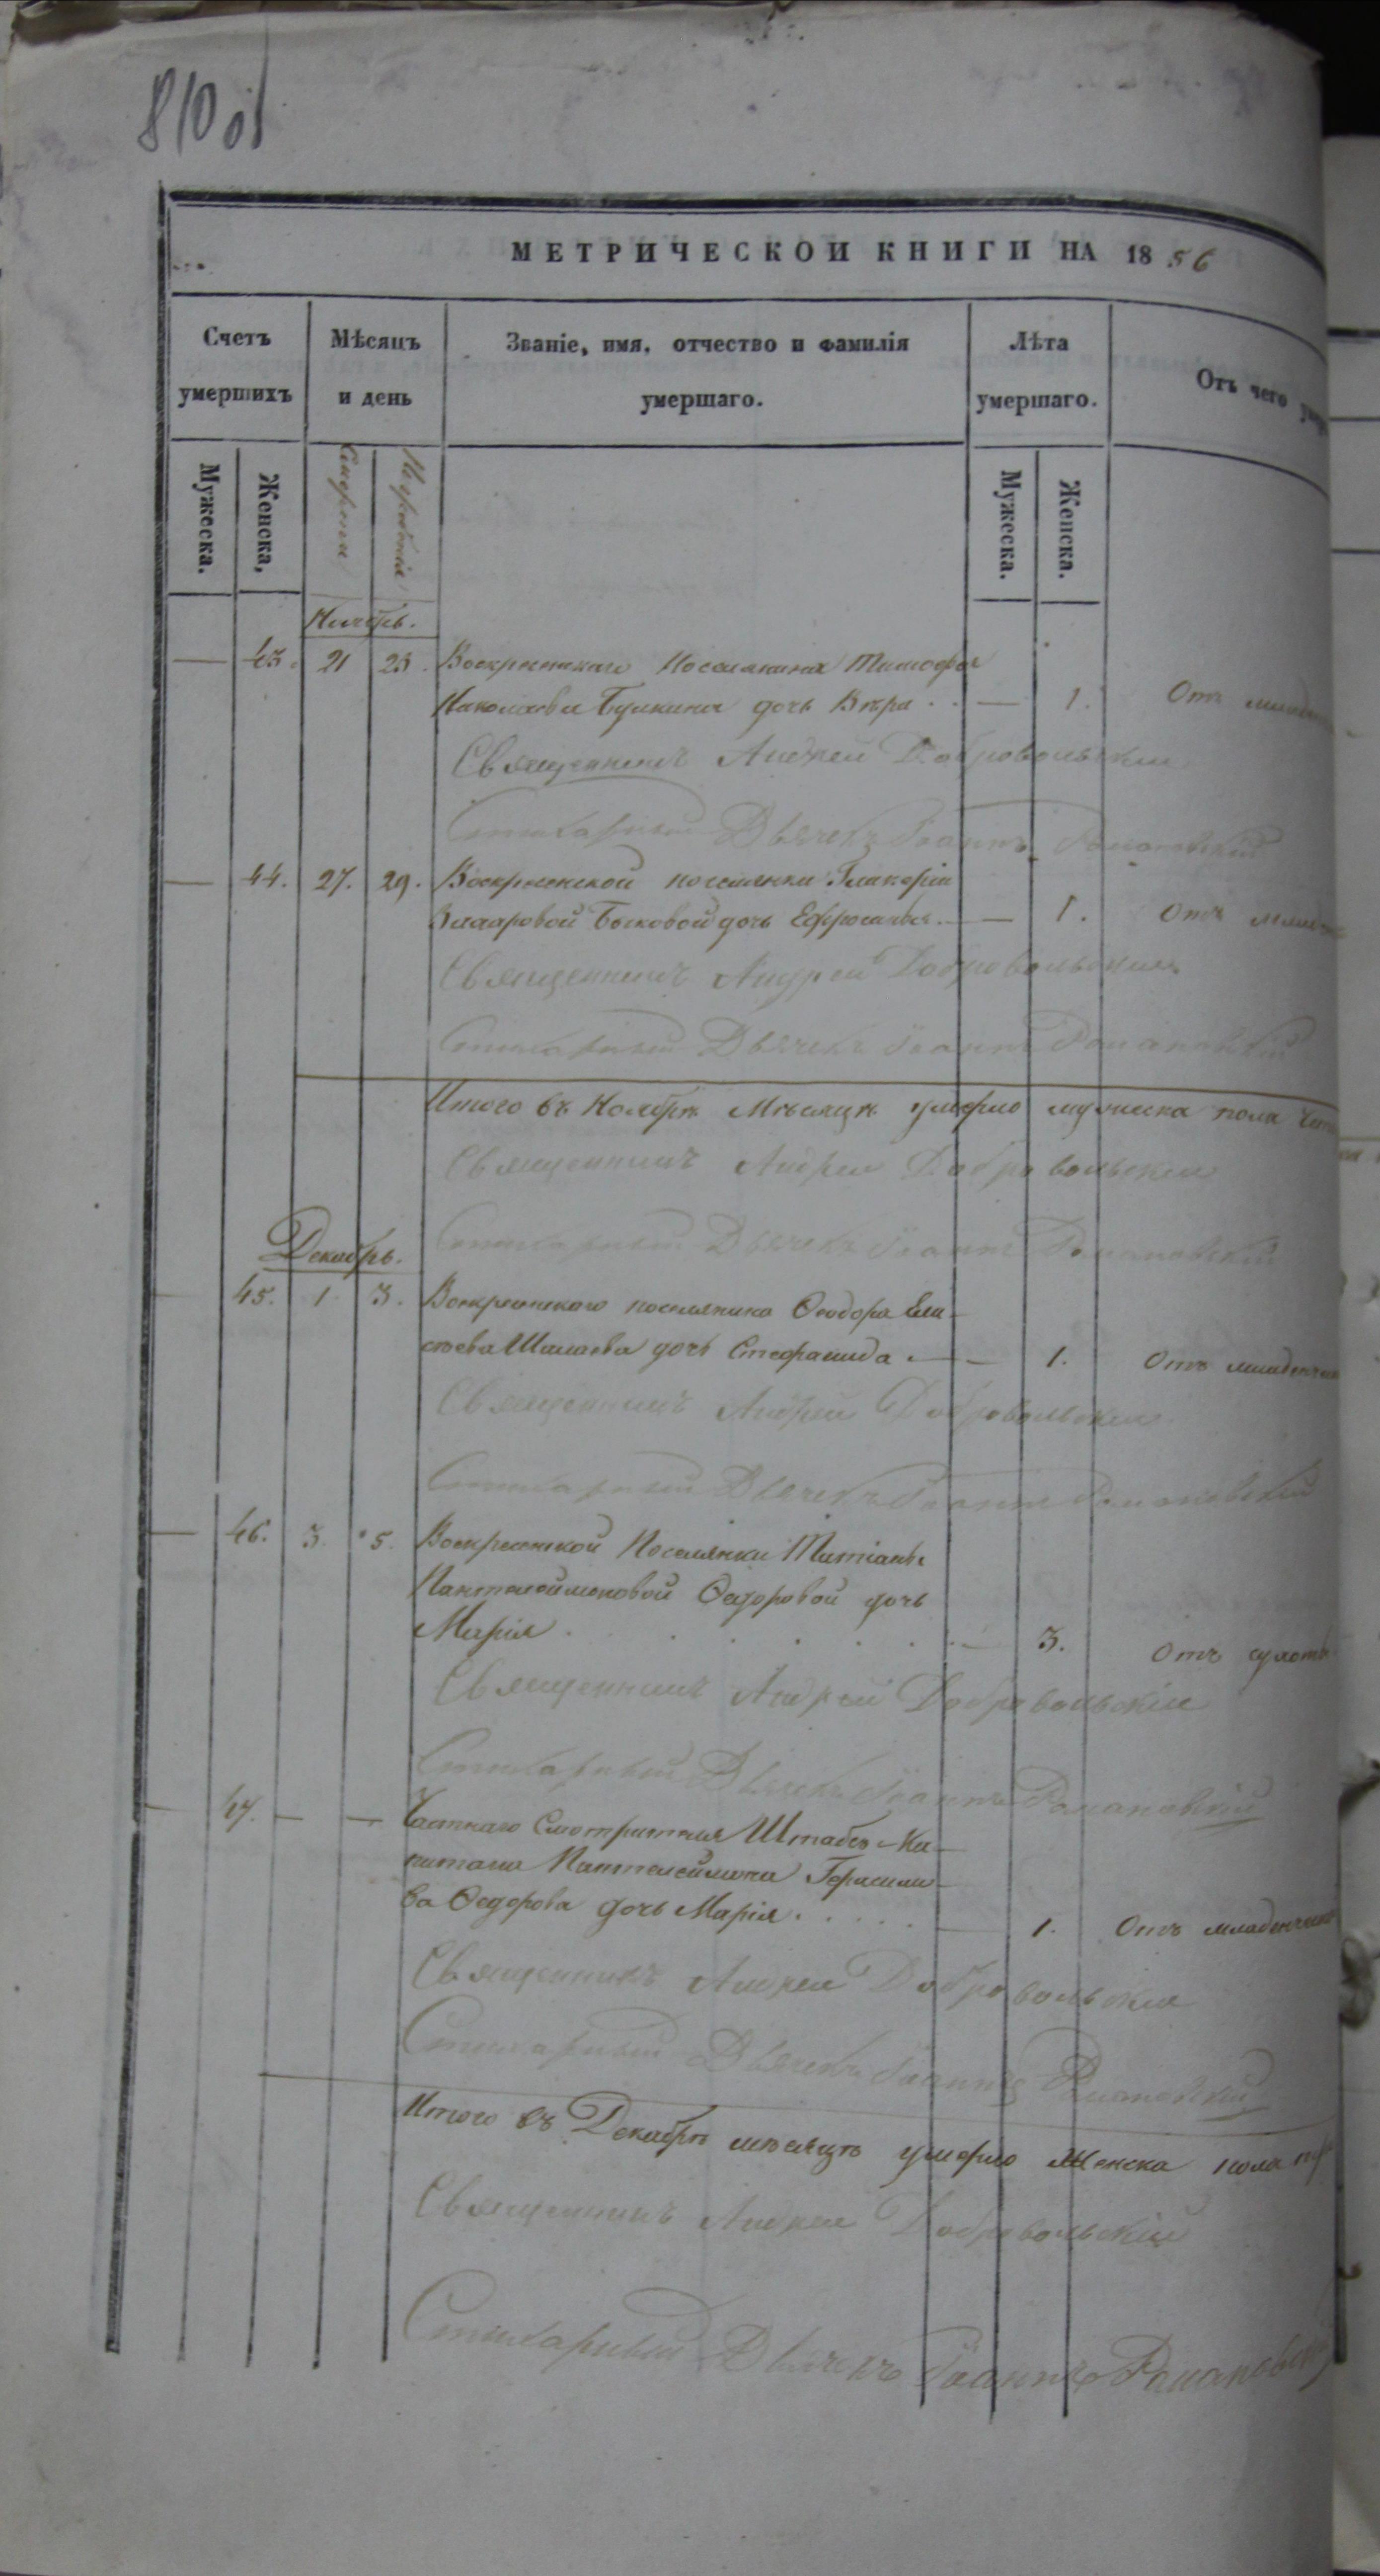 810 об
МЕТРИЧЕСКОЙ КНИГИ НА 1856
Счетъ умершихъ
Мѣсяцъ и день
Званіе, имя, отчество и фамилія умершаго.
Лѣта умершаго.
Отъ чего
Мужеска.
Женска,
Смерти
Погребенія
Мужеска.
Женска.
Ноябрь.
43. 21 23. Воскресенскаго Поселянина Тимофея
Николаева Булкина дочь Вѣра . . — 1. Отъ
Священникъ Андрей Добровольскій
Стихарный Дьячекъ Іоаннъ Романовскій
— 44. 27. 29. Воскресенской поселянки Гликеріи
Быковой дочь Ефросинья. — 1. Отъ
Священникъ Андрей Добровольскій
Стихарный Дьячекъ Іоаннъ Романовскій
Итого въ Ноябрѣ Мѣсяцѣ умерло мужеска пола
Священникъ Андрей Добровольскій
Стихарный Дьячекъ Іоаннъ Романовскій
Декабрь.
45. 1 3. Воскресенскаго поселянина Ѳеодора Ели-
сѣева Шалаева дочь Стефанида . — 1. Отъ младенческ
Священникъ Андрей Добровольскій
Стихарный Дьячекъ Іоаннъ Романовскій
— 46. 3. 5. Воскресенской Поселянки Татіаны
Пантелеймоновой Ѳедоровой дочь
Марія . . . . . . — 3. Отъ сухоты
Священникъ Андрей Добровольскій
Стихарный Дьячекъ Іоаннъ Романовскій
— 47. — — Частнаго Смотрителя Штабсъ-Ка-
питана Пантелеймона Герасимо-
ва Ѳедорова дочь Марія . . . . . — 1. Отъ младенческ
Священникъ Андрей Добровольскій
Стихарный Дьячекъ Іоаннъ Романовскій
Итого въ Декабрѣ мѣсяцѣ умерло Женска пола
Священникъ Андрей Добровольскій
Стихарный Дьячекъ Іоаннъ Романовскій